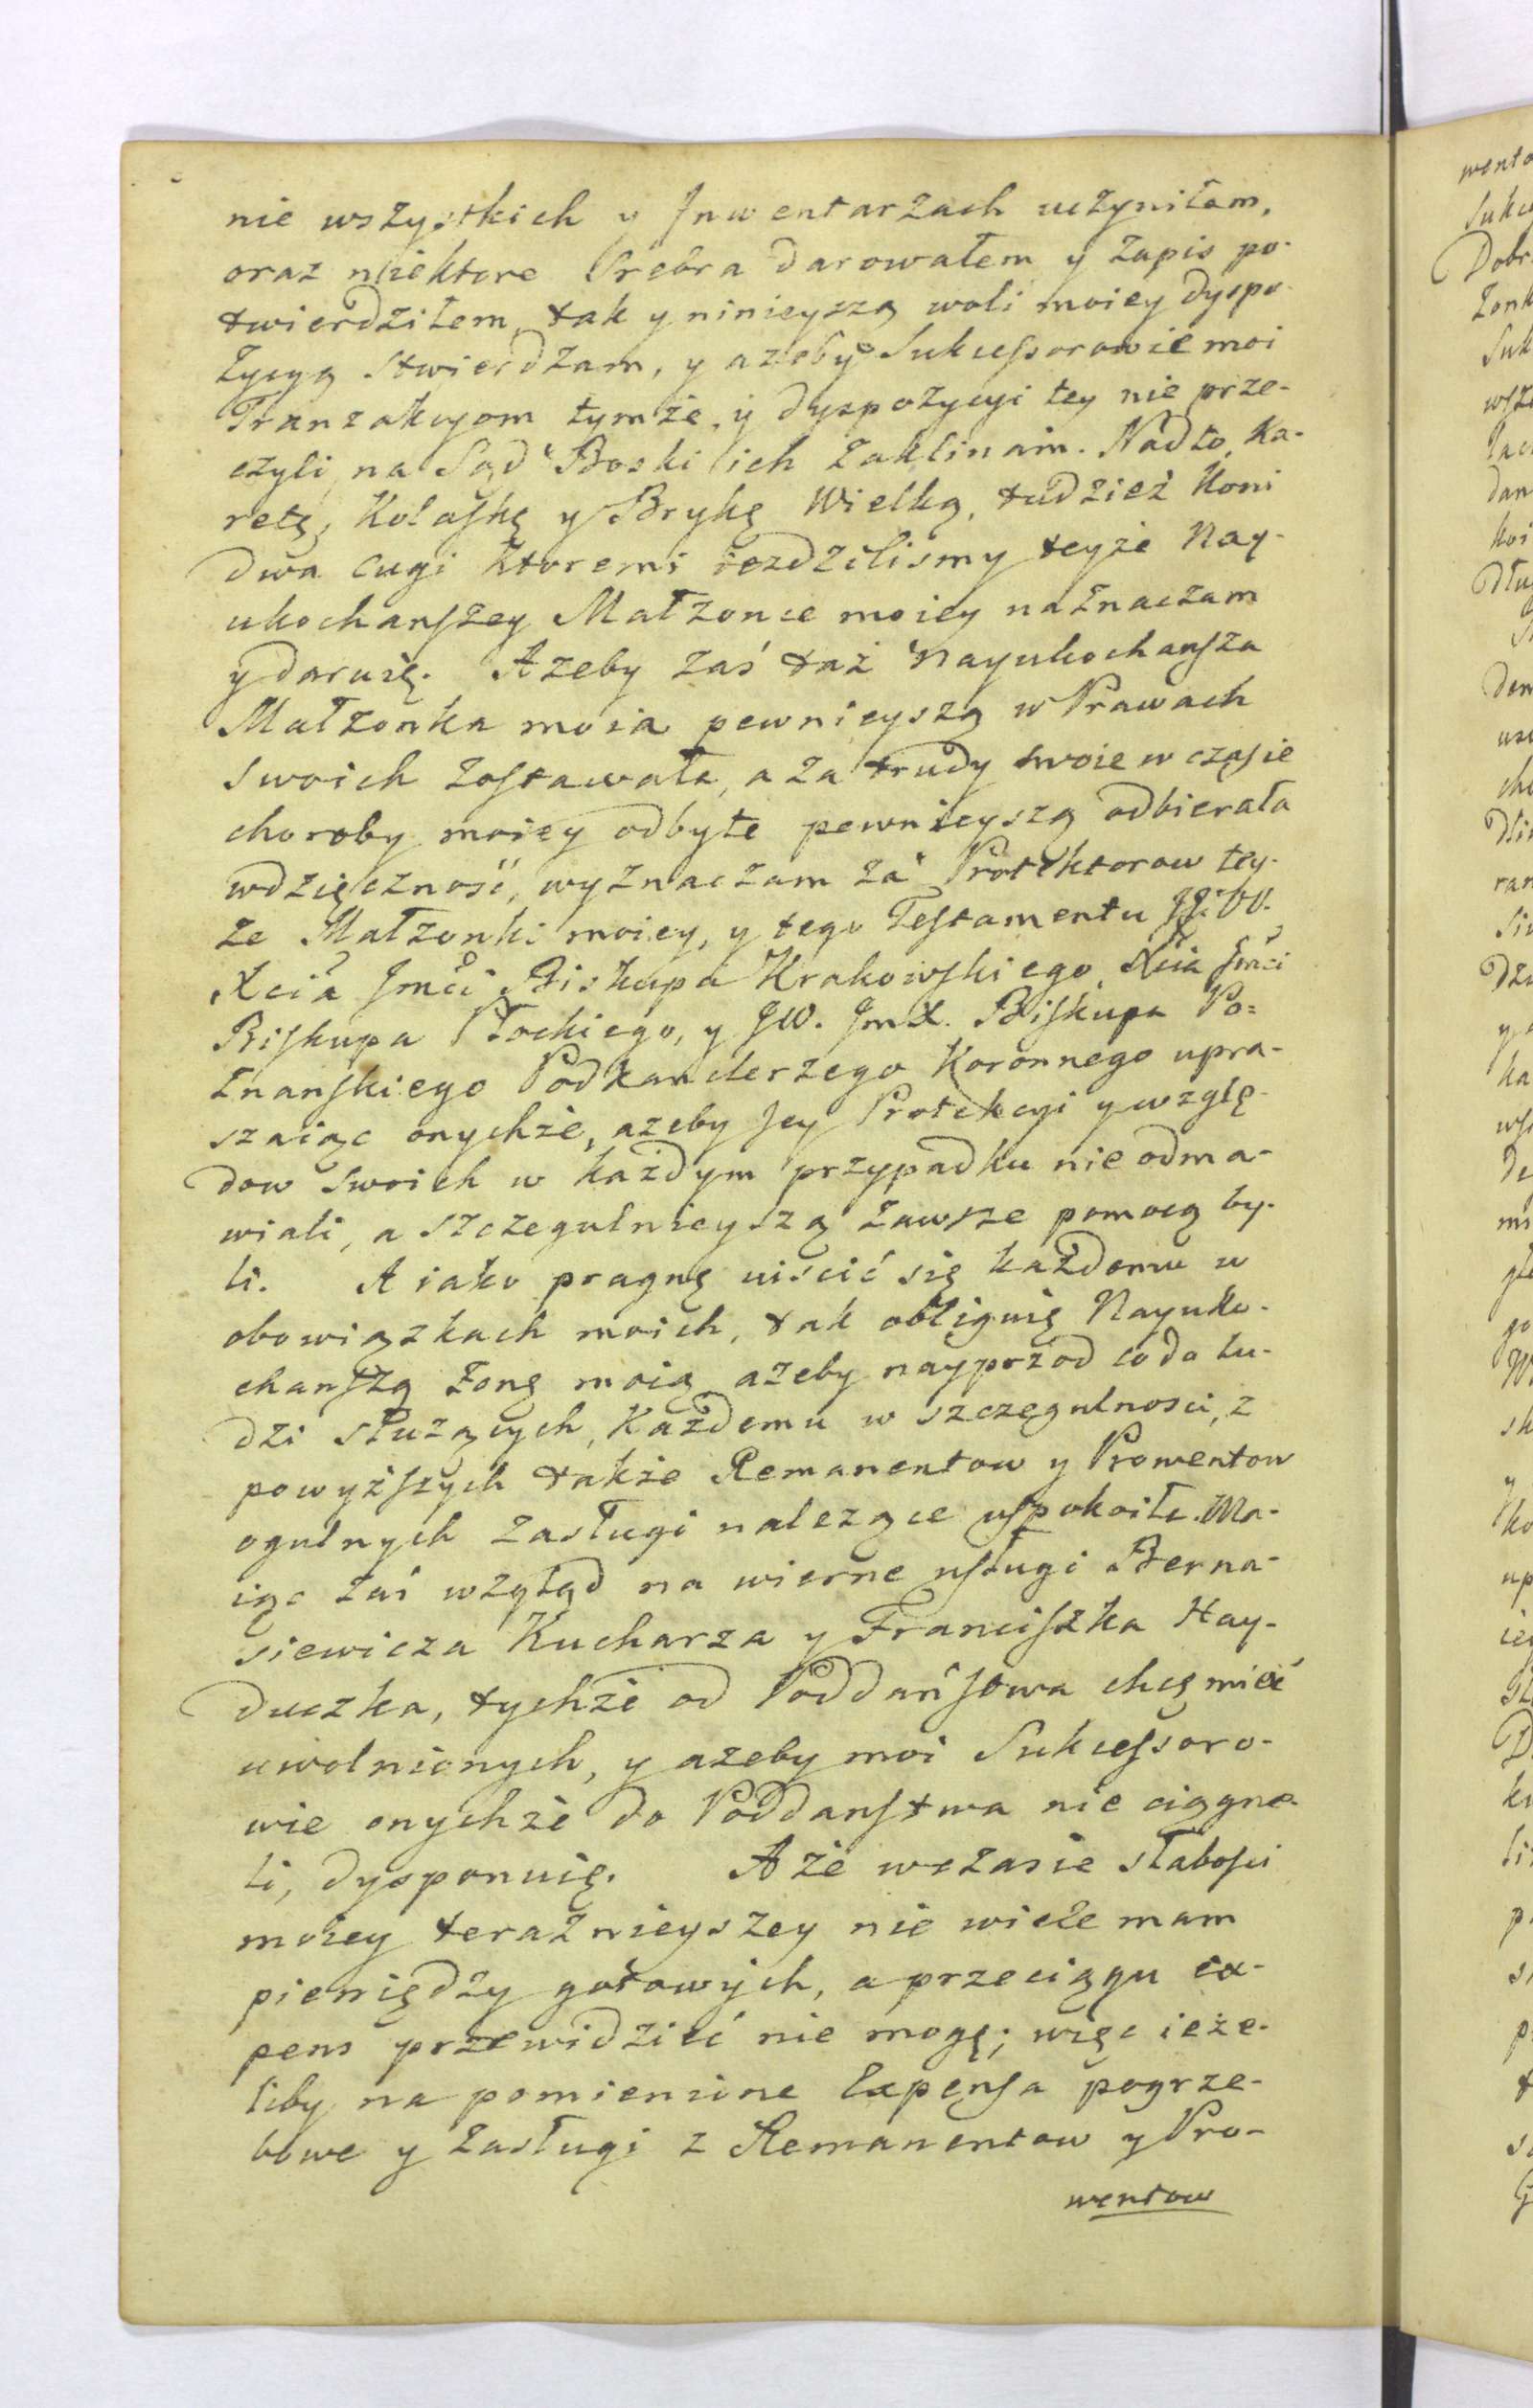 nie wszystkich y Jnwentarzach uczyniłem,
oraz niektore Srebra darowałem y Zapis po-
twierdziłem, tak y ninieyszą woli moiey dyspo-
zycyą stwierdzam, y azeby Sukcessorowie moi
Tranzakcyom tymże, y dyspozycyi tey nie prze-
czyli, na Sąd Boski ich zaklinam. Nadto, Ka-
retę, Kolaskę y Brykę Wielką, tudzież Koni
dwa cugi ktoremi iezdzilismy teyże Nay-
ukochanszey Małzonce moiey naznaczam
y daruię. Azeby zaś taż Nayukochansza
Małzonka moia pewnieyszą w Prawach
swoich zostawała, a za trudy swoie w czasie
choroby moiey odbyte pewnieyszą odbierała
wdzięczność, wyznaczam za Protektorow tey-
że Małzonki moiey, y tego Testamentu JJ. OO.
Xcia Jmci Biskupa Krakowskiego, Xcia Jmci
Biskupa Płockiego, y JW. JmX. Biskupa Po=
znanskiego Podkanclerzego Koronnego upra-
szaiąc onychże, azeby Jey Protekcyi y wzglę-
dow swoich w każdym przypadku nie odma-
wiali, a szczegulnieyszą zawsze pomocą by-
li. A iako pragnę uiścić się każdemu w
obowiązkach moich, tak obliguię Nayuko-
chanszą Zonę moią ażeby nayprzod co do lu-
dzi służących, Każdemu w szczegulnosci, z
powyższych także Remanentow y Prowentow
ogulnych zasługi nalezące uspokoiła. Ma-
iąc zaś wzgląd na wierne usługi Berna-
siewicza Kucharza y Franciszka Hay-
duczka, tychże od Poddaństwa chcę mieć
uwolnionych, y azeby moi Sukcessoro-
wie onychże do Poddanstwa nie ciągne-
li, dysponuię. A że wczasie słabosci
moiey teraznieyszey nie wiele mam
pieniędzy gotowych, a przeciągu ex-
pens przewidzieć nie mogę; więc ieże-
liby na pomienione Expensa pogrze-
bowe y zasługi z Remanentow y Pro-
wentow